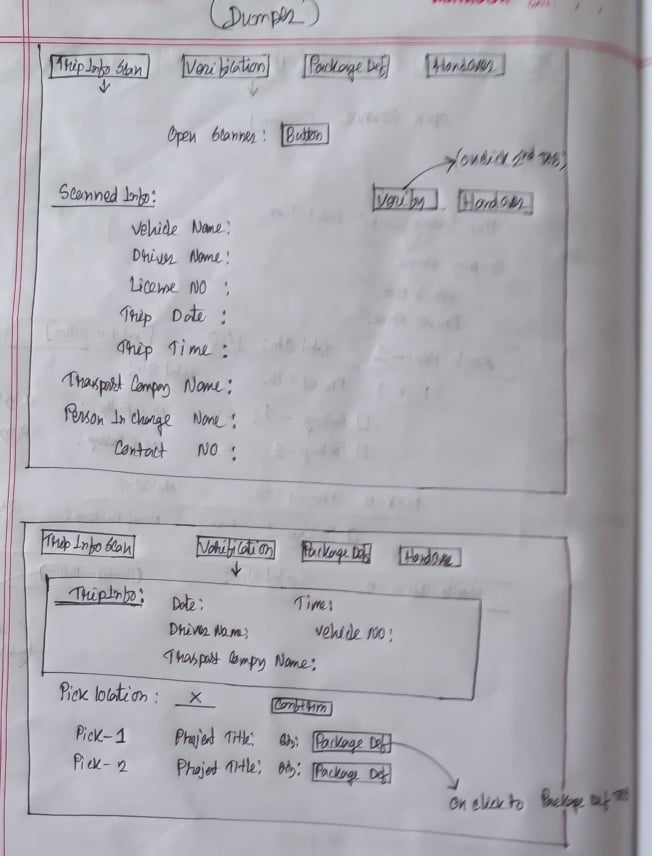 (Dumper)
Trip Info Scan Verification Package Def Handover
Open Scanner: Button
(on click 2nd tab)
Scanned Info: Verify Handover
Vehicle Name:
Driver Name:
License NO :
Trip Date :
Trip Time :
Transport Compny Name:
Person In charge Name:
Contact NO :
Trip Info Scan Verification Package Def Handover
Trip Info: Date: Time:
Driver Name: Vehicle NO:
Transport Compny Name:
Pick location: X Confirm
Pick-1 Project Title: Qty: Package Def
Pick-2 Projet Title: Qty: Package Def
on click to Package Def Tab